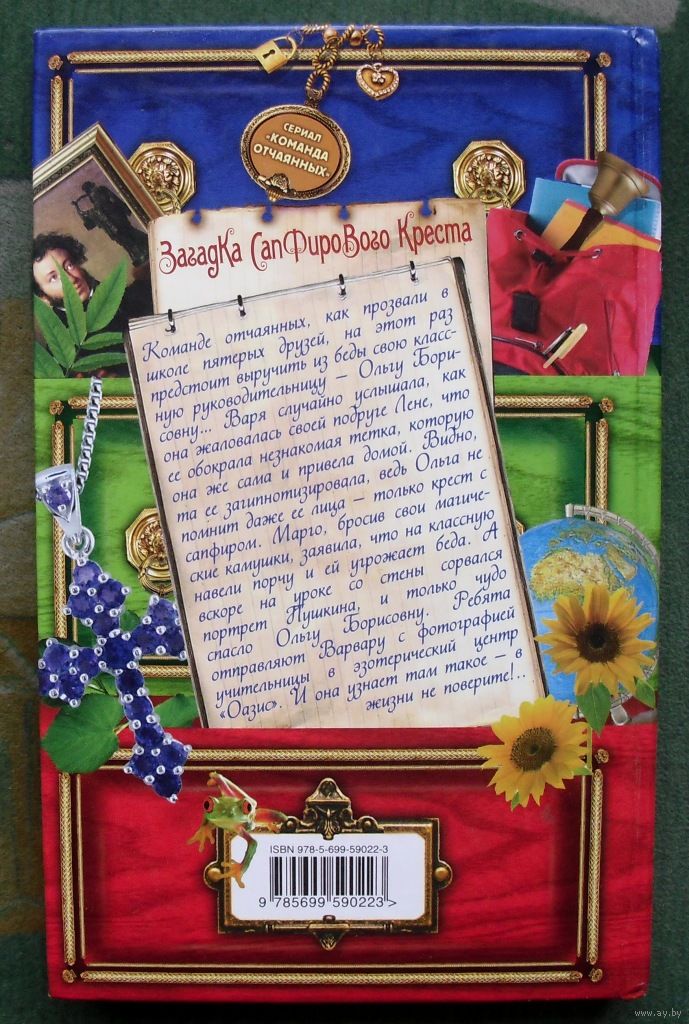 СЕРИАЛ
«КОМАНДА
ОТЧАЯННЫХ»
Загадка Сапфирового Креста
Команде отчаянных, как прозвали в
школе пятерых друзей, на этот раз
предстоит выручить из беды свою класс-
ную руководительницу – Ольгу Бори-
совну... Варя случайно услышала, как
она жаловалась своей подруге Лене, что
ее обокрала незнакомая тетка, которую
она же сама и привела домой. Видно,
та ее загипнотизировала, ведь Ольга не
помнит даже ее лица – только крест с
сапфиром. Марго, бросив свои магиче-
ские камушки, заявила, что на классную
навели порчу и ей угрожает беда. А
вскоре на уроке со стены сорвался
портрет Пушкина, и только чудо
спасло Ольгу Борисовну. Ребята
отправляют Варвару с фотографией
учительницы в эзотерический центр
«Оазис». И она узнает там такое – в
жизни не поверите!..
ISBN 978-5-699-59022-3
9 785699 590223 >
www.ay.by